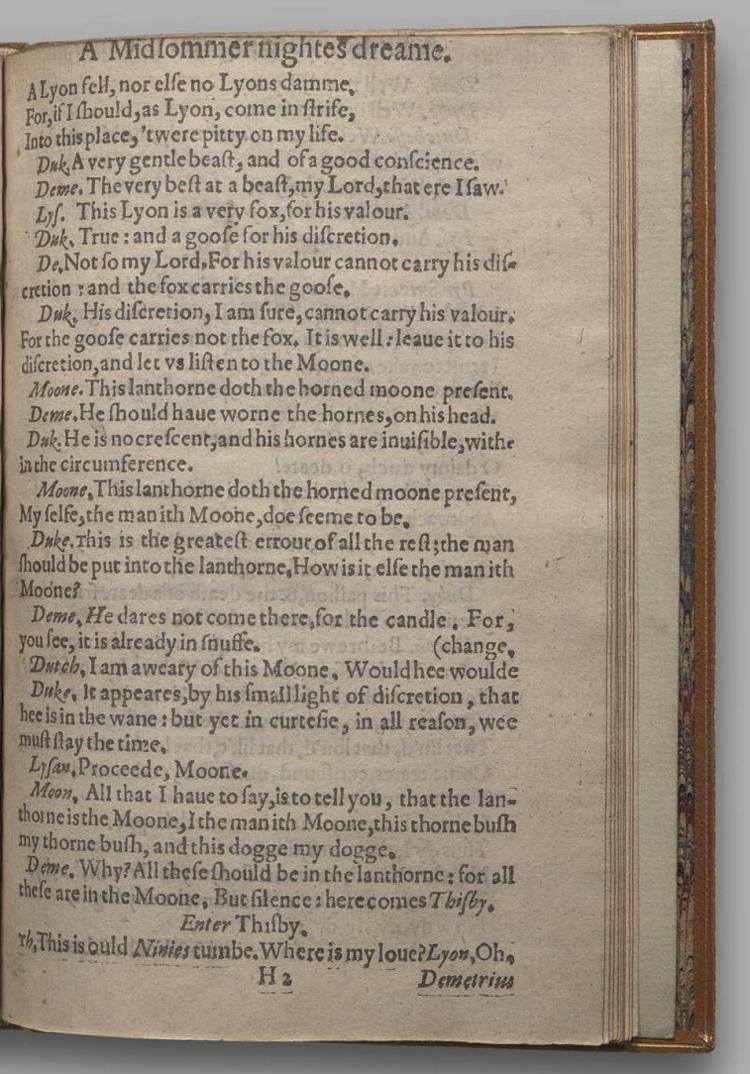 A Midſommer nightes dreame.
A Lyon fell, nor elſe no Lyons damme,
For, if I ſhould, as Lyon, come in ſtrife,
Into this place, 'twere pitty on my life.
Duk. A very gentle beaſt, and of a good conſcience.
Deme. The very beſt at a beaſt, my Lord, that ere I ſaw.
Lyſ. This Lyon is a very fox, for his valour.
Duk. True: and a gooſe for his diſcretion.
De. Not ſo my Lord. For his valour cannot carry his diſ-
cretion: and the fox carries the gooſe.
Duk. His diſcretion, I am ſure, cannot carry his valour.
For the gooſe carries not the fox. It is well: leaue it to his
diſcretion, and let vs liſten to the Moone.
Moone. This lanthorne doth the horned moone preſent.
Deme. He ſhould haue worne the hornes, on his head.
Duk. He is no creſcent, and his hornes are inuiſible, with-
in the circumference.
Moone. This lanthorne doth the horned moone preſent,
My ſelfe, the man ith Moone, doe ſeeme to be.
Duke. This is the greateſt errour of all the reſt; the man
ſhould be put into the lanthorne. How is it elſe the man ith
Moone?
Deme. He dares not come there, for the candle. For,
you ſee, it is already in ſnuffe. (change.
Dutch. I am aweary of this Moone. Would hee woulde
Duke. It appeares, by his ſmall light of diſcretion, that
hee is in the wane: but yet in curteſie, in all reaſon, wee
muſt ſtay the time.
Lyſan. Proceede, Moone.
Moon. All that I haue to ſay, is to tell you, that the lan-
thorne is the Moone, I the man ith Moone, this thorne buſh
my thorne buſh, and this dogge my dogge.
Deme. Why? All theſe ſhould be in the lanthorne: for all
theſe are in the Moone. But ſilence: here comes Thiſby.
Enter Thiſby.
Th. This is ould Ninies tumbe. Where is my loue? Lyon, Oh.
H2 Demetrius